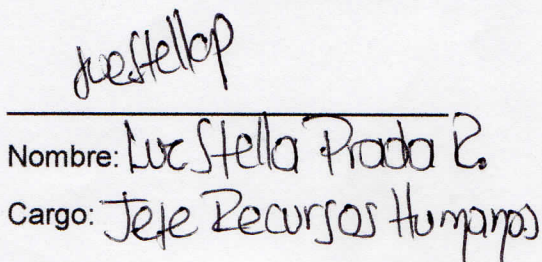 luestellap
Nombre: Luz Stella Prada R.
Cargo: Jefe Recursos Humanos